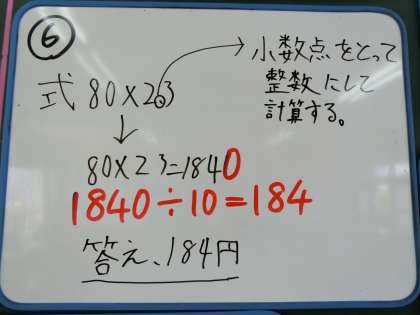 ⑥
式 80×2.3
小数点をとって
整数にして
計算する。
80×23=1840
1840÷10=184
答え、184円